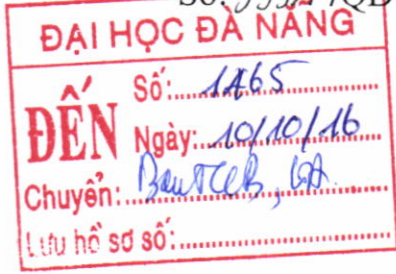 Số:
ĐẠI HỌC ĐÀ NẴNG
ĐẾN
Số: 1465
Ngày: 10/10/16
Chuyển:
Lưu hồ sơ số: